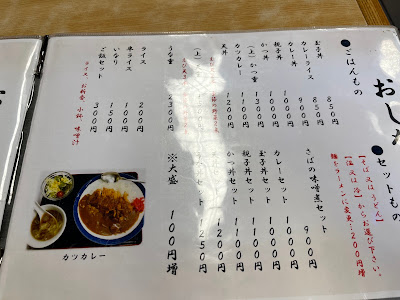 おし
●ごはんもの
玉子丼 850円
カレーライス 850円
カレー丼 900円
親子丼 1000円
かつ丼 1000円
(上)かつ重 1300円
天丼
カツカレー 1200円
(上)
うな重 2300円
ライス 200円
半ライス 100円
いなり 150円
ご飯セット 300円
ライス、お新香、小鉢、味噌汁
●セットもの
【そば又はうどん】
【温又は冷】からお選び下さい。
麺をラーメンに変更…200円増
さばの味噌煮セット 900円
カレーセット 1000円
玉子丼セット
親子丼セット 1100円
かつ丼セット 1100円
天丼セット 1200円
セット 1250円
※大盛 100円増
カツカレー